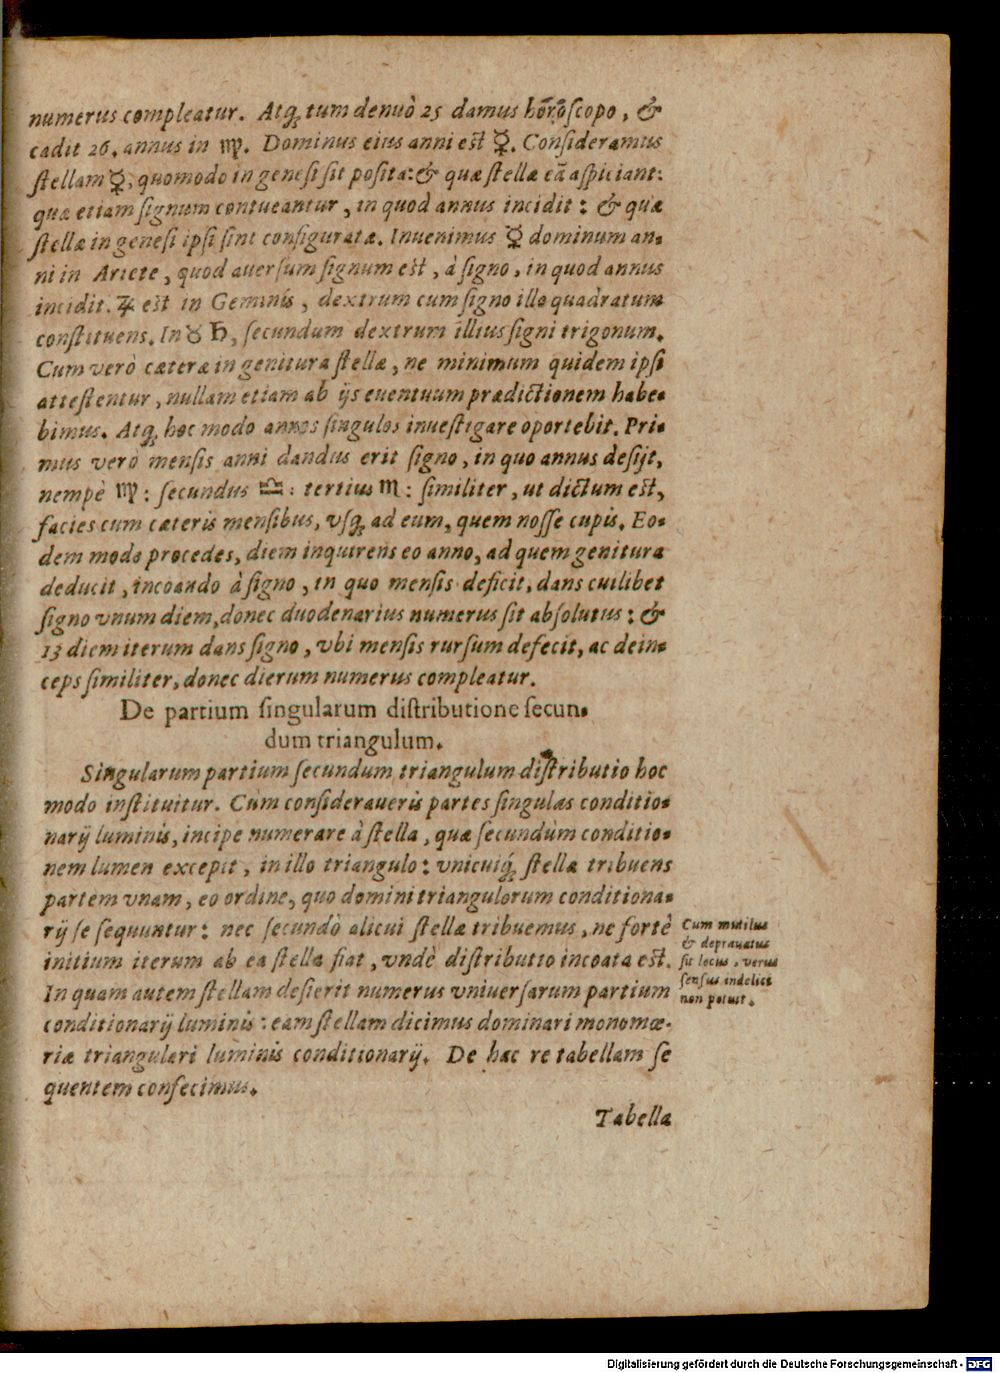 numerus compleatur. Atq́; tum denuò 25 damus horoscopo, &
cadit 26. annus in ♍. Dominus eius anni est ☿. Consideramus
stellam ☿, quomodo in genesi sit posita: & quæ stellæ eā aspiciant:
quæ etiam signum contueantur, in quod annus incidit: & quæ
stellæ in genesi ipsi sint configuratæ. Inuenimus ☿ dominum an-
ni in Ariete, quod auersum signum est, à signo, in quod annus
incidit. ♃ est in Geminis, dextrum cum signo illo quadratum
constituens. In ♉ ♄, secundum dextrum illius signi trigonum.
Cum verò cæteræ in genitura stellæ, ne minimum quidem ipsi
attestentur, nullam etiam ab ijs euentuum prædictionem habe-
bimus. Atq́; hoc modo annos singulos inuestigare oportebit. Pri-
mus verò mensis anni dandus erit signo, in quo annus desijt,
nempè ♍: secundus ♎: tertius ♏: similiter, ut dictum est,
facies cum cæteris mensibus, vsq́; ad eum, quem nosse cupis. Eo-
dem modo procedes, diem inquirens eo anno, ad quem genitura
deducit, incoando à signo, in quo mensis deficit, dans cuilibet
signo vnum diem, donec duodenarius numerus sit absolutus: &
13 diem iterum dans signo, vbi mensis rursum defecit, ac dein-
ceps similiter, donec dierum numerus compleatur.
De partium singularum distributione secun-
dum triangulum.
Singularum partium secundum triangulum distributio hoc
modo instituitur. Cùm consideraueris partes singulas conditio-
narij luminis, incipe numerare à stella, quæ secundùm conditio-
nem lumen excepit, in illo triangulo: vnicuiq́; stellæ tribuens
partem vnam, eo ordine, quo domini triangulorum conditiona-
rij se sequuntur: nec secundò alicui stellæ tribuemus, ne fortè
initium iterum ab ea stella fiat, vndè distributio incoata est.
In quam autem stellam desierit numerus vniuersarum partium
conditionarij luminis: eam stellam dicimus dominari monomœ-
riæ triangulari luminis conditionarij. De hac re tabellam se
quentem confecimus.
Cum mutilus
& deprauatus
sit locus, verus
sensus indelici
non potuit.
Tabella
Digitalisierung gefördert durch die Deutsche Forschungsgemeinschaft - DFG